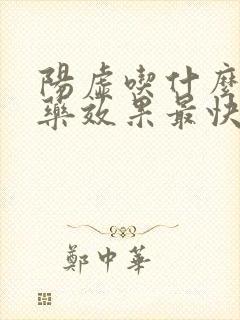 陽虛喫什麼
藥效果最快
鄭中華